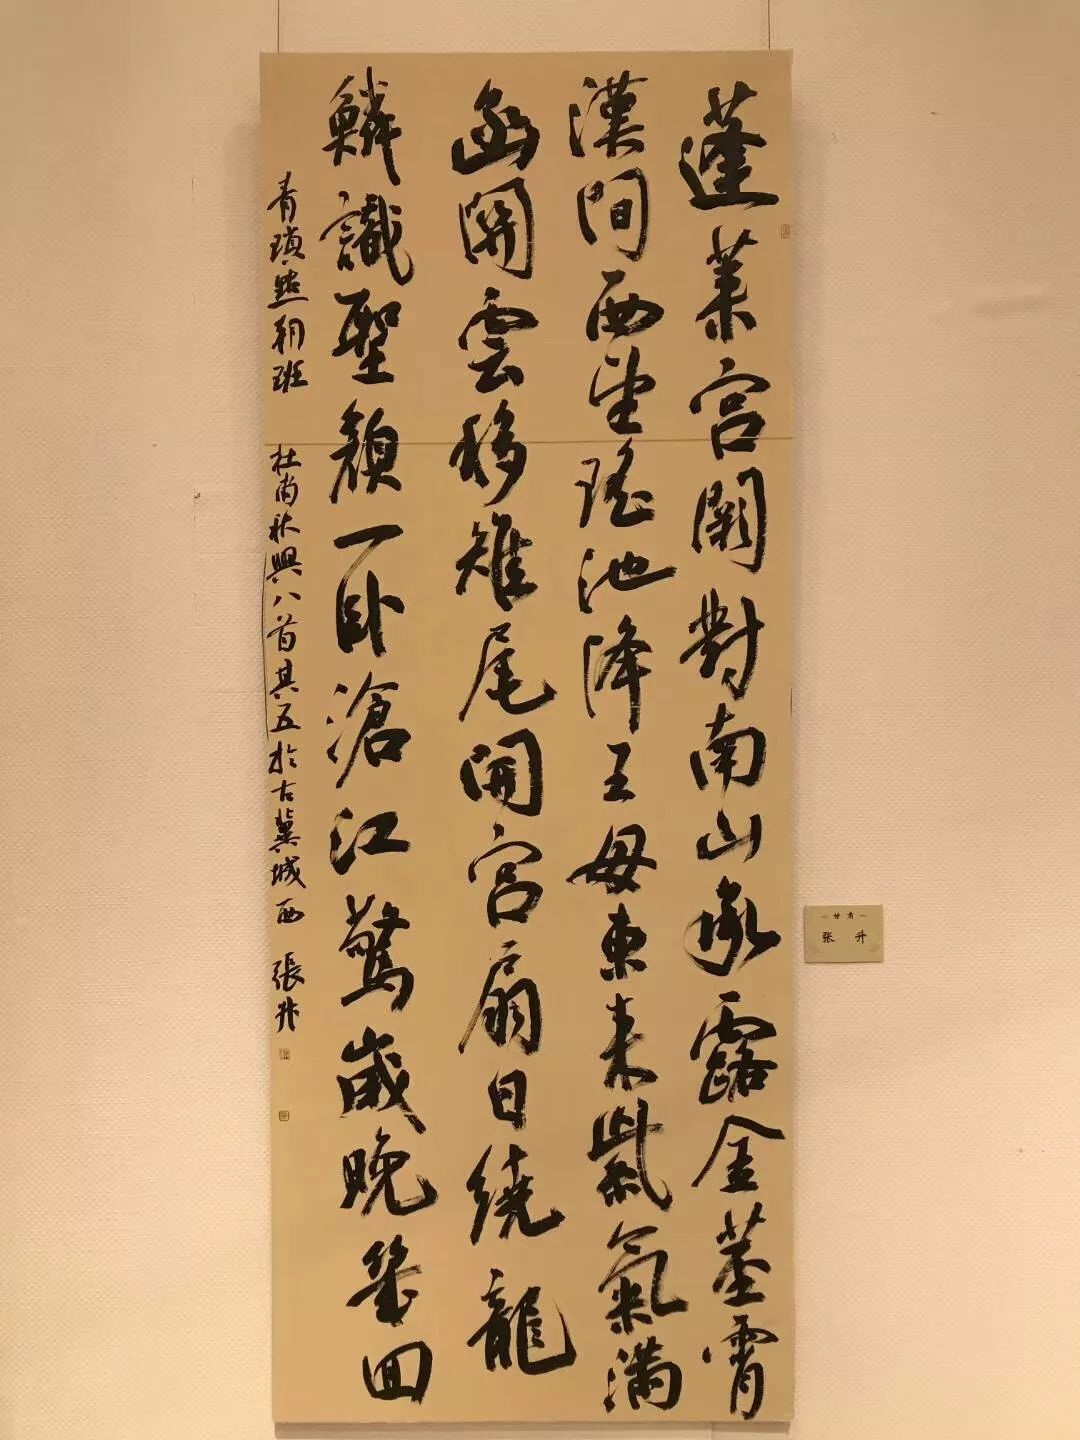 蓬萊宮闕對南山承露金莖霄
漢間西望瑤池降王母東来紫氣滿
函關雲移雉尾開宮扇日繞龍
鱗識聖顏一卧滄江驚歲晚幾回
青瑣點朝班 杜甫秋興八首其五於古冀城西 張升
甘肃
张升